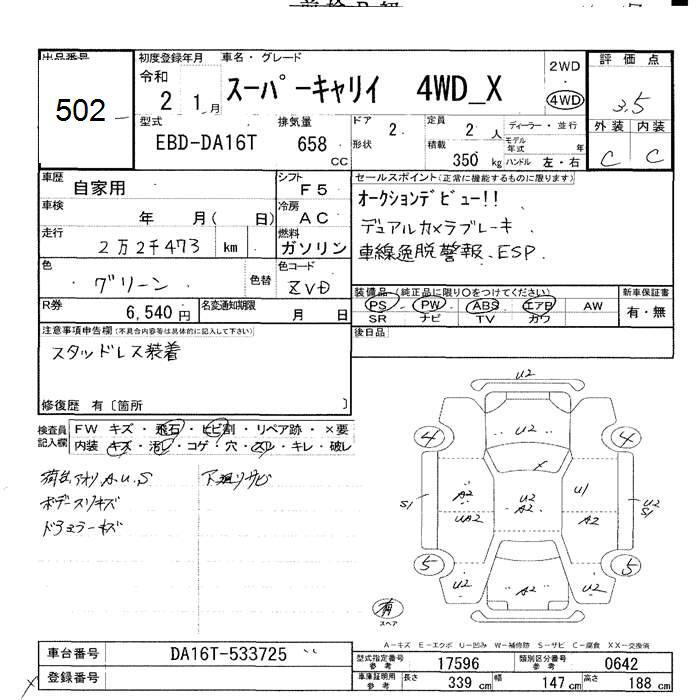 出品番号
502
初度登録年月
令和
2 1月
車名・グレード
スーパーキャリイ 4WD_X
2WD
・
4WD
評価点
3.5
外装 内装
C C
型式
EBD-DA16T
排気量
658
CC
ドア
2
形状
定員
2 人
積載
350 kg
ディーラー・並行
モデル年式 年
ハンドル 左・右
車歴
自家用
シフト
F5
車検
年 月( 日)
冷房
AC
走行
2万2千473 km
燃料
ガソリン
色
グリーン
色替
色コード
ZVD
R券
6,540 円
名変通知期限
月 日
セールスポイント(正常に機能するものに限ります)
オークションデビュー!!
デュアルカメラブレーキ
車線逸脱警報、ESP
装備品(純正品に限り○をつけてください)
PS PW ABS エアB AW
SR ナビ TV カワ
新車保証書
有・無
後日品
注意事項申告欄(不具合内容等は具体的に記入して下さい)
スタッドレス装着
修復歴 有〔箇所 〕
検査員記入欄
FW キズ・飛石・ヒビ割・リペア跡・×要
内装 キズ・汚レ・コゲ・穴・スリ・キレ・破レ
荷台アオリA.U.S
下廻りサビ
ボデースリキズ
ドアミラーキズ
U2
U2
4 4
A2 U2 U1
UA2 A2 A2
S1 U2
S1
5 5
U2 A2 U2
有
スペア
A-キズ E-エクボ U-凹み W-補修跡 S-サビ C-腐食 XX-交換済
車台番号
DA16T-533725
登録番号
型式指定番号
参考
17596
類別区分番号
参考
0642
車庫証明用
参考
長さ 339 cm 幅 147 cm 高さ 188 cm